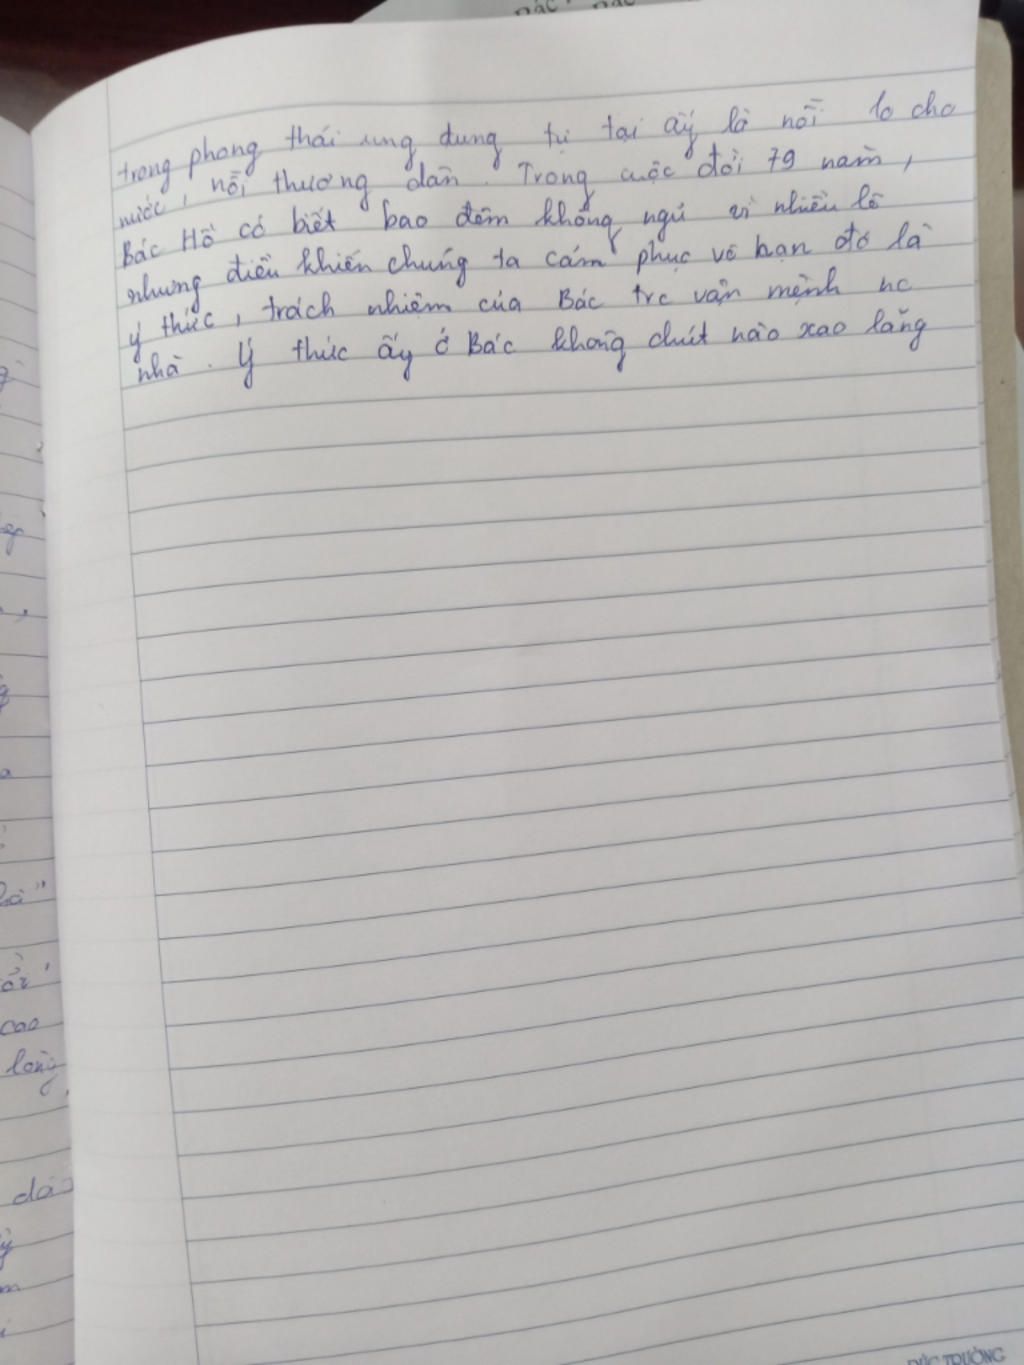 trong phong thái ung dung tự tại ấy là nỗi lo cho
nước, nỗi thương dân. Trong cuộc đời 79 năm,
Bác Hồ có biết bao đêm không ngủ vì nhiều lẽ
nhưng điều khiến chúng ta cảm phục vô hạn đó là
ý thức, trách nhiệm của Bác trc vận mệnh nc
nhà. Ý thức ấy ở Bác không chút nào xao lãng
hà"
cao
lòng
TRƯỜNG